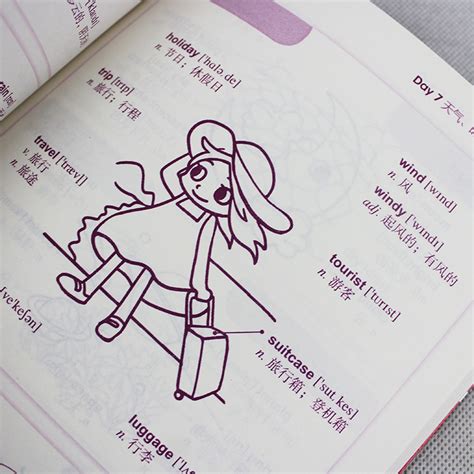 Day 7 天气
holiday ['hɑlə,de]
n. 节日；休假日
trip [trɪp]
n. 旅行；行程
travel ['trævl]
v. 旅行
n. 旅途
wind [wɪnd]
n. 风
windy ['wɪndɪ]
adj. 起风的；有风的
tourist ['tʊrɪst]
n. 游客
suitcase ['sut,kes]
n. 旅行箱；登机箱
luggage
n. 行李